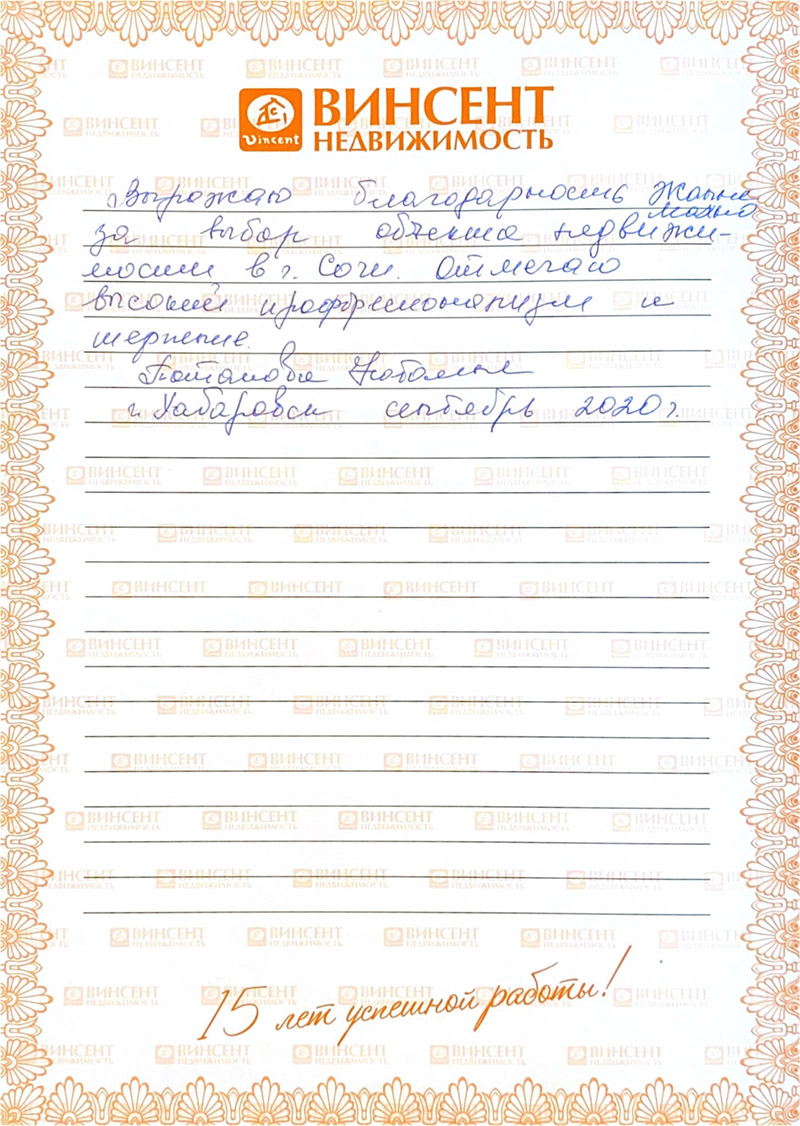 Vincent
ВИНСЕНТ
НЕДВИЖИМОСТЬ
Выражаю благодарность Жанне
Махно
за выбор объекта недвижи-
мости в г. Сочи. Отмечаю
высокий профессионализм и
терпение.
Потапова Наталья
г. Хабаровск сентябрь 2020 г.
15 лет успешной работы!